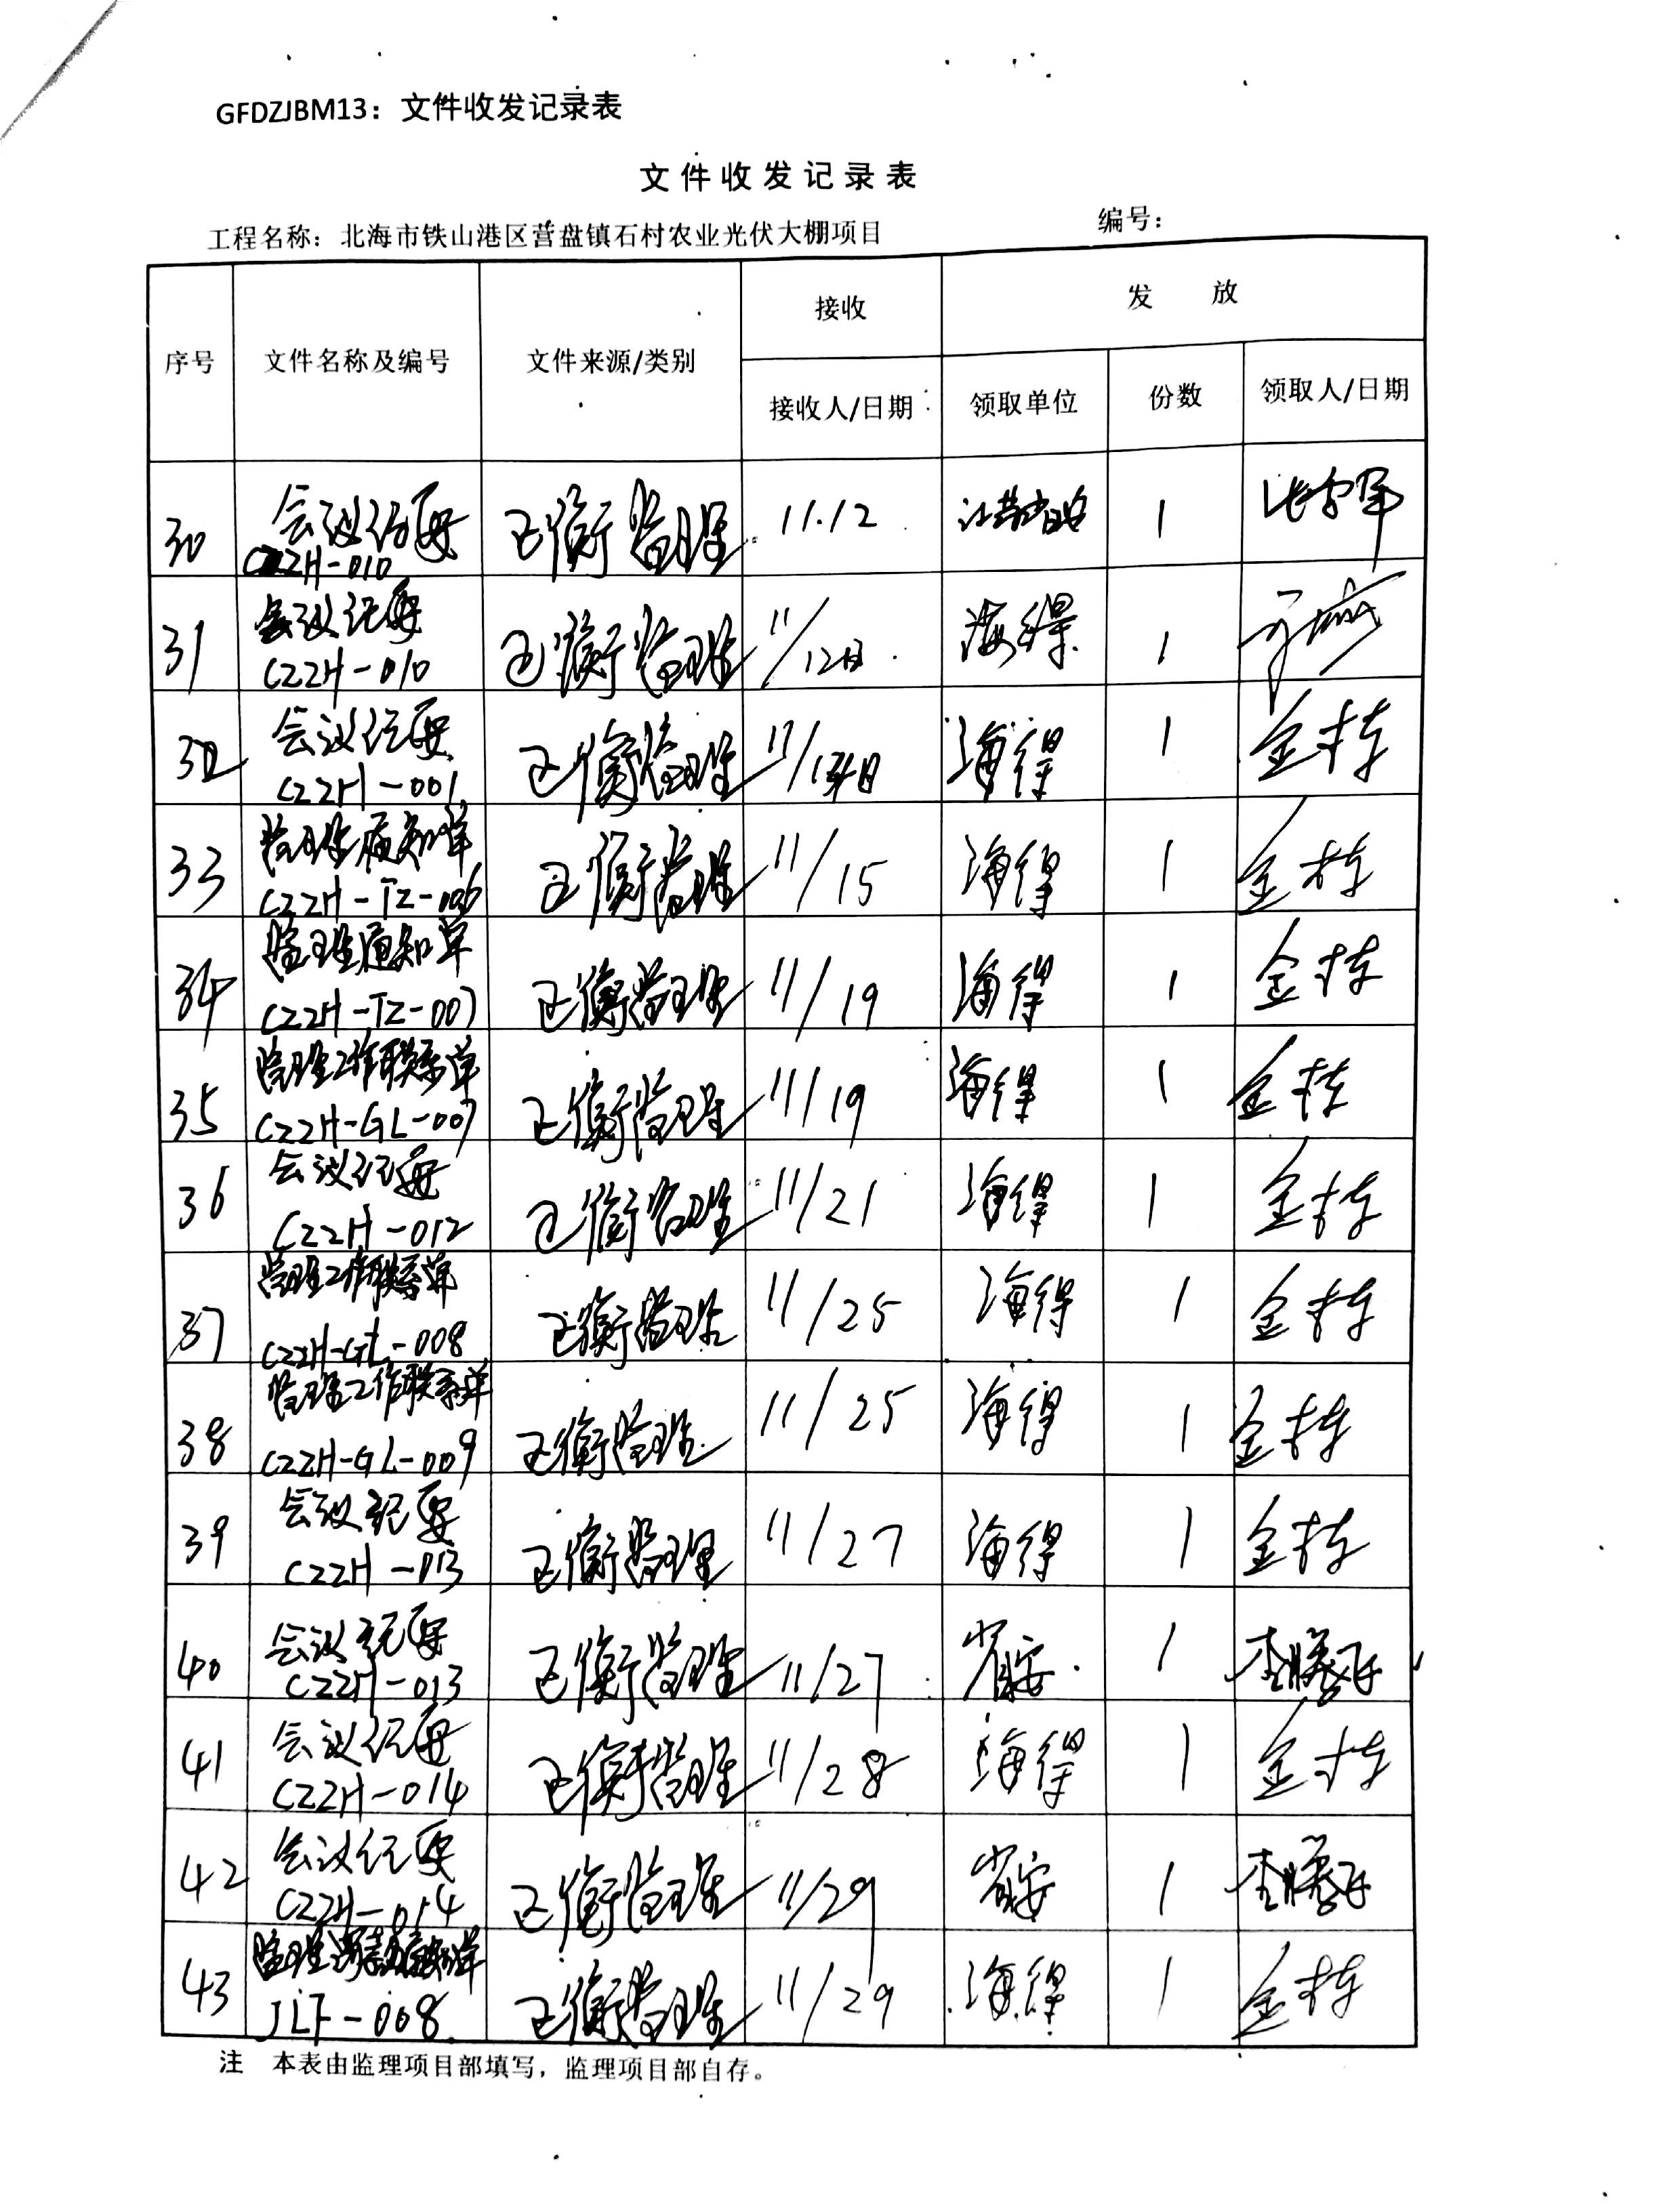 GFDZJBM13：文件收发记录表
文件收发记录表
工程名称：北海市铁山港区营盘镇石村农业光伏大棚项目 编号：
接收 发 放
序号 文件名称及编号 文件来源/类别
接收人/日期 领取单位 份数 领取人/日期
30 会议纪要 正衡监理 11.12 江苏省安 1
CZZH-010
31 会议纪要 正衡监理 11/12日 海得 1
CZZH-010
32 会议纪要 正衡监理 11/ 日 海得 1 金栋
CZZH-001
33 监理通知单 正衡监理 11/15 海得 1 金栋
CZZH-TZ-006
34 监理通知单 正衡监理 11/19 海得 1 金栋
CZZH-TZ-007
35 监理工作联系单 正衡监理 11/19 海得 1 金栋
CZZH-GL-007
36 会议纪要 正衡监理 11/21 海得 1 金栋
CZZH-012
37 监理工作联系单 正衡监理 11/25 海得 1 金栋
CZZH-GL-008
38 监理工作联系单 正衡监理 11/25 海得 1 金栋
CZZH-GL-009
39 会议纪要 正衡监理 11/27 海得 1 金栋
CZZH-013
40 会议纪要 正衡监理 11/27 省安 1
CZZH-013
41 会议纪要 正衡监理 11/28 海得 1 金栋
CZZH-014
42 会议纪要 正衡监理 11/29 省安 1
CZZH-014
43 监理 通知单 正衡监理 11/29 海得 1 金栋
JLF-008
注 本表由监理项目部填写，监理项目部自存。